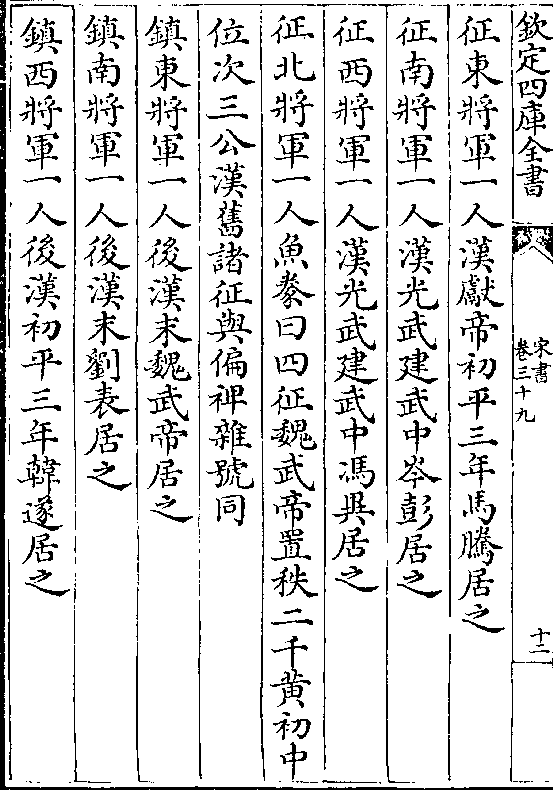 欽定四庫全書
宋書
卷三十九
十二
征東將軍一人漢獻帝初平三年馬騰居之
征南將軍一人漢光武建武中岑彭居之
征西將軍一人漢光武建武中馮異居之
征北將軍一人魚豢曰四征魏武帝置秩二千黃初中
位次三公漢舊諸征與偏裨雜號同
鎮東將軍一人後漢末魏武帝居之
鎮南將軍一人後漢末劉表居之
鎮西將軍一人後漢初平三年韓遂居之